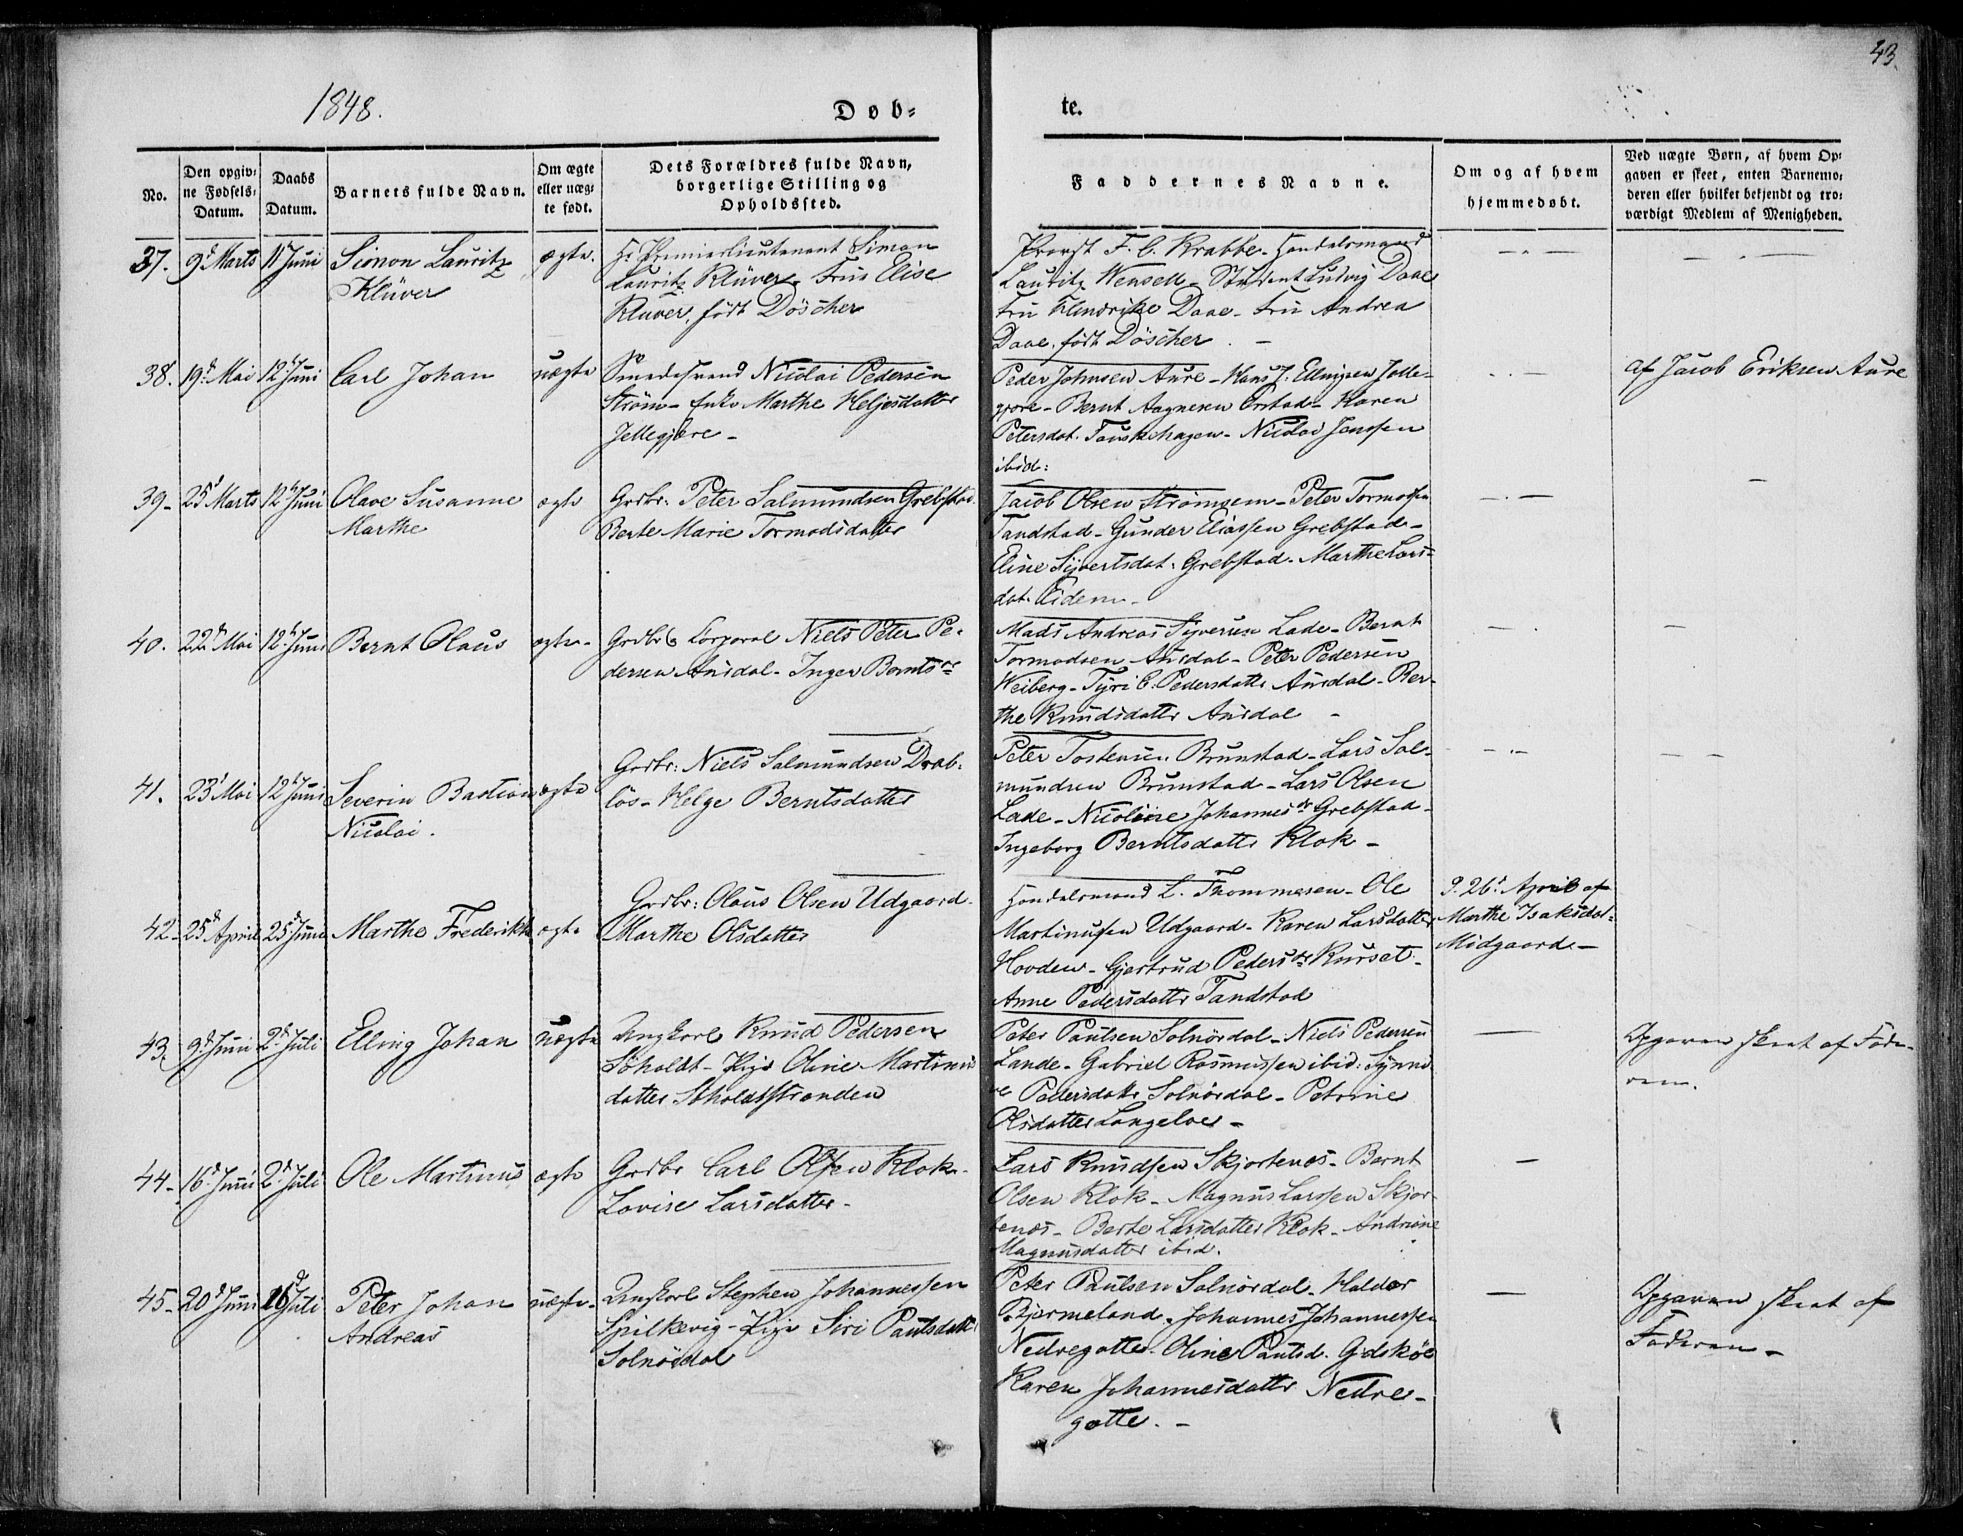 43.
1848.
Døb-
te.
No.
Den opgiv-
ne Fødsels-
Datum.
Daabs
Datum.
Barnets fulde Navn.
Om ægte
eller uæg-
te født.
Dets Forældres fulde Navn,
borgerlige Stilling og
Opholdssted.
Faddernes Navne.
Om og af hvem
hjemmedøbt.
Ved uægte Børn, af hvem Op-
gaven er skeet, enten Barnemo-
deren eller hvilket bekjendt og tro-
værdigt Medlem af Menigheden.
37. 9d Marts 11 Juni
Simon Lauritz
Klüver
ægte.
Hr Premierlieutenant Simon
Lauritz Klüver - Fru Elise
Klüver, født Döscher
Provst F. C. Krabbe - Handelsmand
Lauritz Wensell - Student Ludvig Daae
Fru Hendrikke Daae - Fru Andrea
Daae, født Döscher. -
38. 19d Mai 12 Juni
Carl Johan
uægte
Smedesvend Nicolai Pedersen
Strøm - Enke Marthe Heljesdatter
Jellegjære -
Peder Johnsen Aure - Hans J. Ellingsen Jelle-
gjære - Bernt Aagnesen Erstad - Karen
Petersdat. Fauskehagen - Nicolai Jensen
ibid:
af Jacob Eriksen Aure
39 - 25d Marts 12 Juni
Olave Susanne
Marthe
ægte
Grdbr: Peter Salmundsen Grebstad
Berte Marie Tormodsdatter
Jacob Olsen Strømsem - Peter Tormodsen
Tandstad - Gunder Eliassen Grebstad -
Eline Syvertsdat: Grebstad - Marthe Lars-
dat. Eidem -
40. 22d Mai 12 Juni
Bernt Olaus
ægte -
Grdbr & Corporal Niels Peter Pe-
dersen Ausdal - Inger Bernts dr
Mads Andreas Syversen Lade - Bernt
Tormodsen Ausdal - Peter Pedersen
Weiberg - Tyri E. Pedersdatter Ausdal - Ber-
the Knudsdatter Ausdal -
41. 23d Mai 12 Juni
Severin Bastian
Nicolai.
ægte
Grdbr: Niels Salmundsen Drab-
løs - Helge Berntsdatter
Peter Tostensen Brunstad - Lars Sal-
mundsen Brunstad - Lars Olsen
Lade - Nicoline Johannes dr Grebstad -
Ingeborg Berntsdatter Klok -
42 - 25d April 25d Juni
Marthe Frederikke
ægte
Grdbr: Olaus Olsen Udgaard -
Marthe Olsdatter
Handelsmand L. Thommesen - Ole
Martinussen Udgaard - Karen Larsdatter
Hovden - Gjertrud Peders dr Kurset -
Anne Pedersdatter Tandstad
D. 26d April af
Marthe Isaksdat-
Midgaard -
43. 9d Juni 2d Juli
Elling Johan
uægte
Ungkarl Knud Pedersen
Søholdt - Pige Oline Martinus
datter Søholdtstranden
Peter Paulsen Solnørdal - Niels Pedersen
Lande - Gabriel Rasmussen ibid: Synnø
ve Pedersdatter Solnørdal - Petrine
Olsdatter Langeløer -
Opgaven skeet af Fade-
ren.
44 - 16d Juni 2d Juli
Ole Martinus
ægte
Grdbr Carl Olsen Klok -
Lovise Larsdatter -
Lars Knudsen Skjortenæs - Bernt
Olsen Klok - Magnus Larssen Skjor-
tenæs - Berte Larsdatter Klok - Andrine
Magnusdatter ibid.
45 - 20d Juni 16d Juli
Peter Johan
Andreas
uægte -
Ungkarl Stephen Johannessen
Spilkevig - Pige Siri Paulsdatter
Solnørdal
Peter Paulsen Solnørdal - Haldor
Bjermeland - Johannes Johannessen
Nedregotte - Oline Paulsd. Gidskøe
Karen Johannesdatter Nedre-
gotte. -
Opgaven skeet af
Faderen -